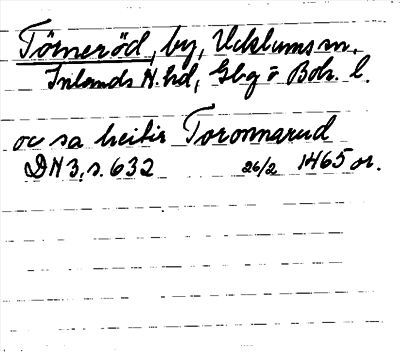 Törneröd, by, Ucklums sn.
Inlands N. hd, Gbg o Boh. l.
oc sa heitir Toronnarud
DN 3, s. 632 26/2 1465 or.